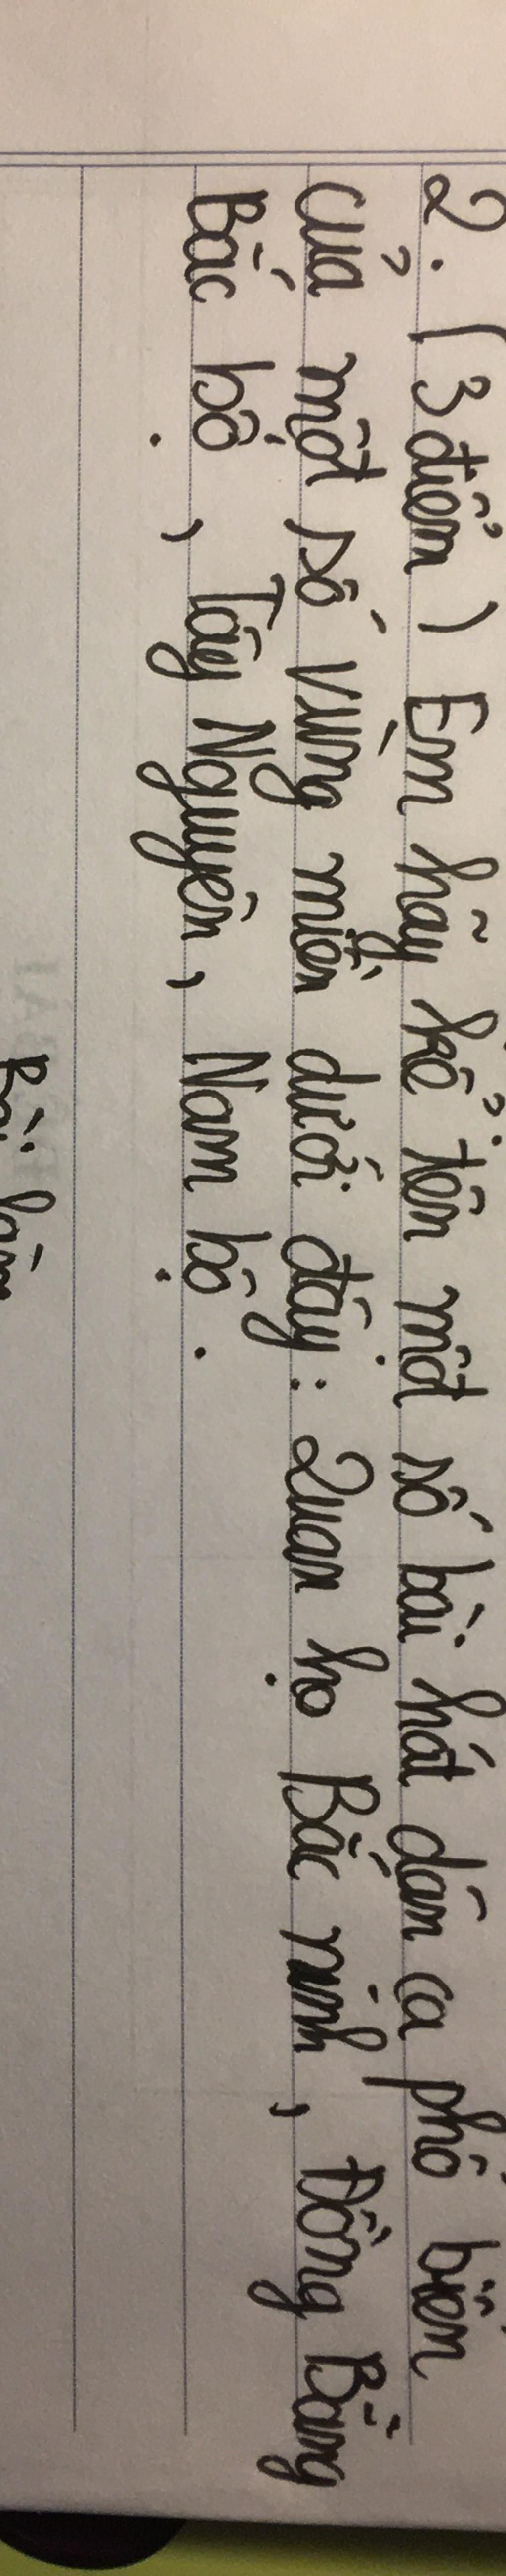 2. (3 điểm) Em hãy kể tên một số bài hát dân ca phổ biến
của một số vùng miền dưới đây: Quan họ Bắc ninh, Đồng Bằng
Bắc bộ, Tây Nguyên, Nam bộ.